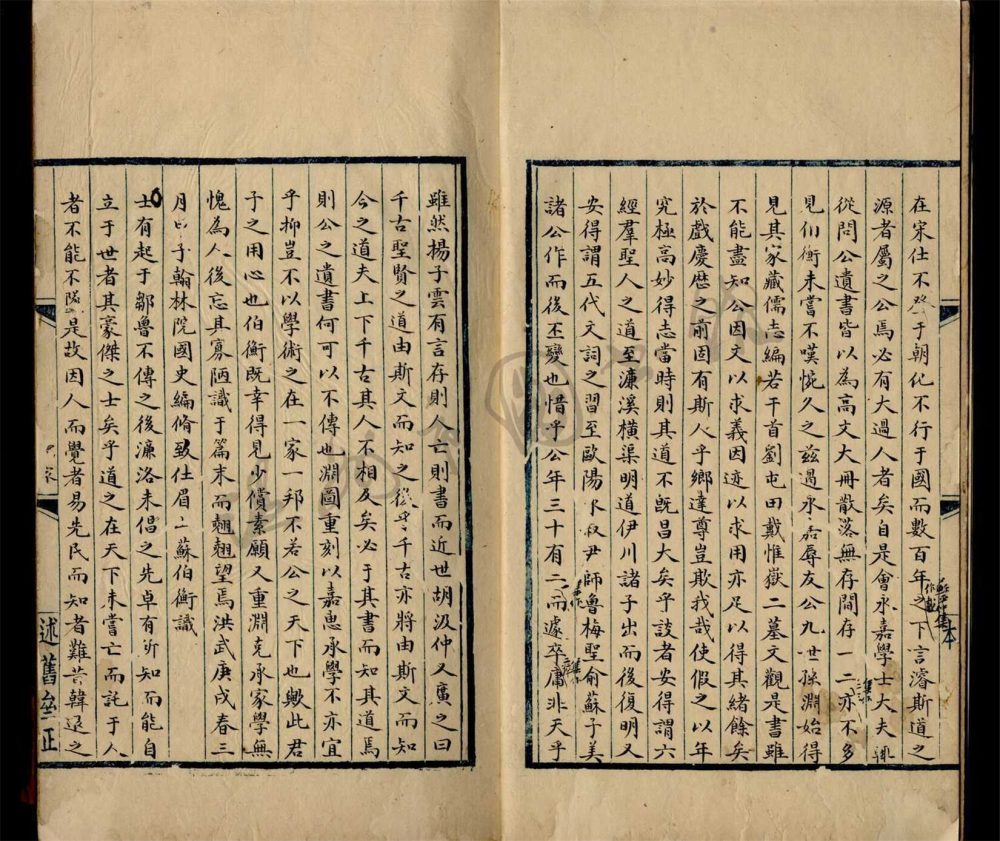 在宋仕不登于朝化不行于國而數百年之下言濬斯道之
源者屬之公焉必有大過人者矣自是會永嘉學士大夫輒
從問公遺書皆以為高文大冊散落無存間存一二亦不多
見伯衡未嘗不嘆惋久之茲過永嘉尋友公九世孫淵始得
見其家藏儒志編若干首劉屯田戴惟嶽二墓文觀是書雖
不能盡知公因文以求義因迹以求用亦足以得其緒餘矣
於戲慶厯之前固有斯人乎鄉達尊豈欺我哉使假之以年
究極高妙得志當時則其道不既昌大矣乎談者安得謂六
經羣聖人之道至濂溪橫渠明道伊川諸子出而後復明又
安得謂五代文詞之習至歐陽永叔尹師魯梅聖俞蘇子美
諸公作而後丕變也惜乎公年三十有二而遽卒庸非天乎
雖然揚子雲有言存則人亡則書而近世胡汲仲又廣之曰
千古聖賢之道由斯文而知之後乎千古亦將由斯文而知
今之道夫上下千古其人不相及矣必于其書而知其道焉
則公之遺書何可以不傳也淵圖重刻以嘉惠承學不亦宜
乎抑豈不以學術之在一家一邦不若公之天下也歟此君
子之用心也伯衡既幸得見少償素願又重淵克承家學無
愧為人後忘其寡陋識于篇末而翹翹望焉洪武庚戌春三
月 子翰林院國史編脩致仕眉 蘇伯衡識
士有起于鄒魯不傳之後濂洛未倡之先卓有所知而能自
立于世者其豪傑之士矣乎道之在天下未嘗亡而託于人
者不能不 是故因人而覺者易先民而知者難昔韓退之
家
述舊